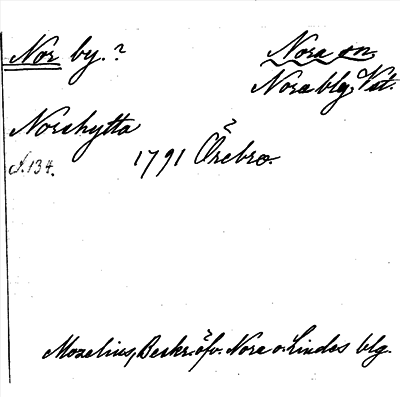 Nor by. ?
Nora sn.
Nora blg, Vst.
Norshytta
s. 134.
1791 Örebro.
Mozelius, Beskr. öfv. Nora o. Lindes blg.